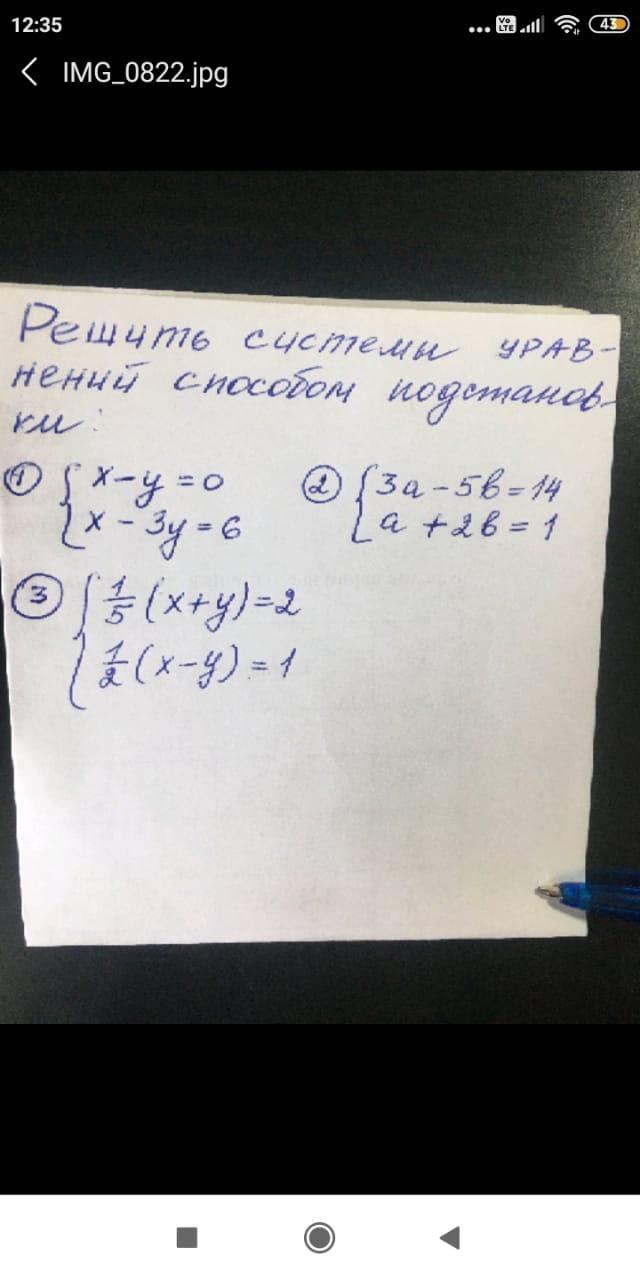 12:35
Vo LTE 43
IMG_0822.jpg
Решить системы урав-
нений способом подстанов-
ки:
① { x - y = 0
x - 3y = 6
② { 3a - 5b = 14
a + 2b = 1
③ { 1/5 (x+y) = 2
1/2 (x-y) = 1